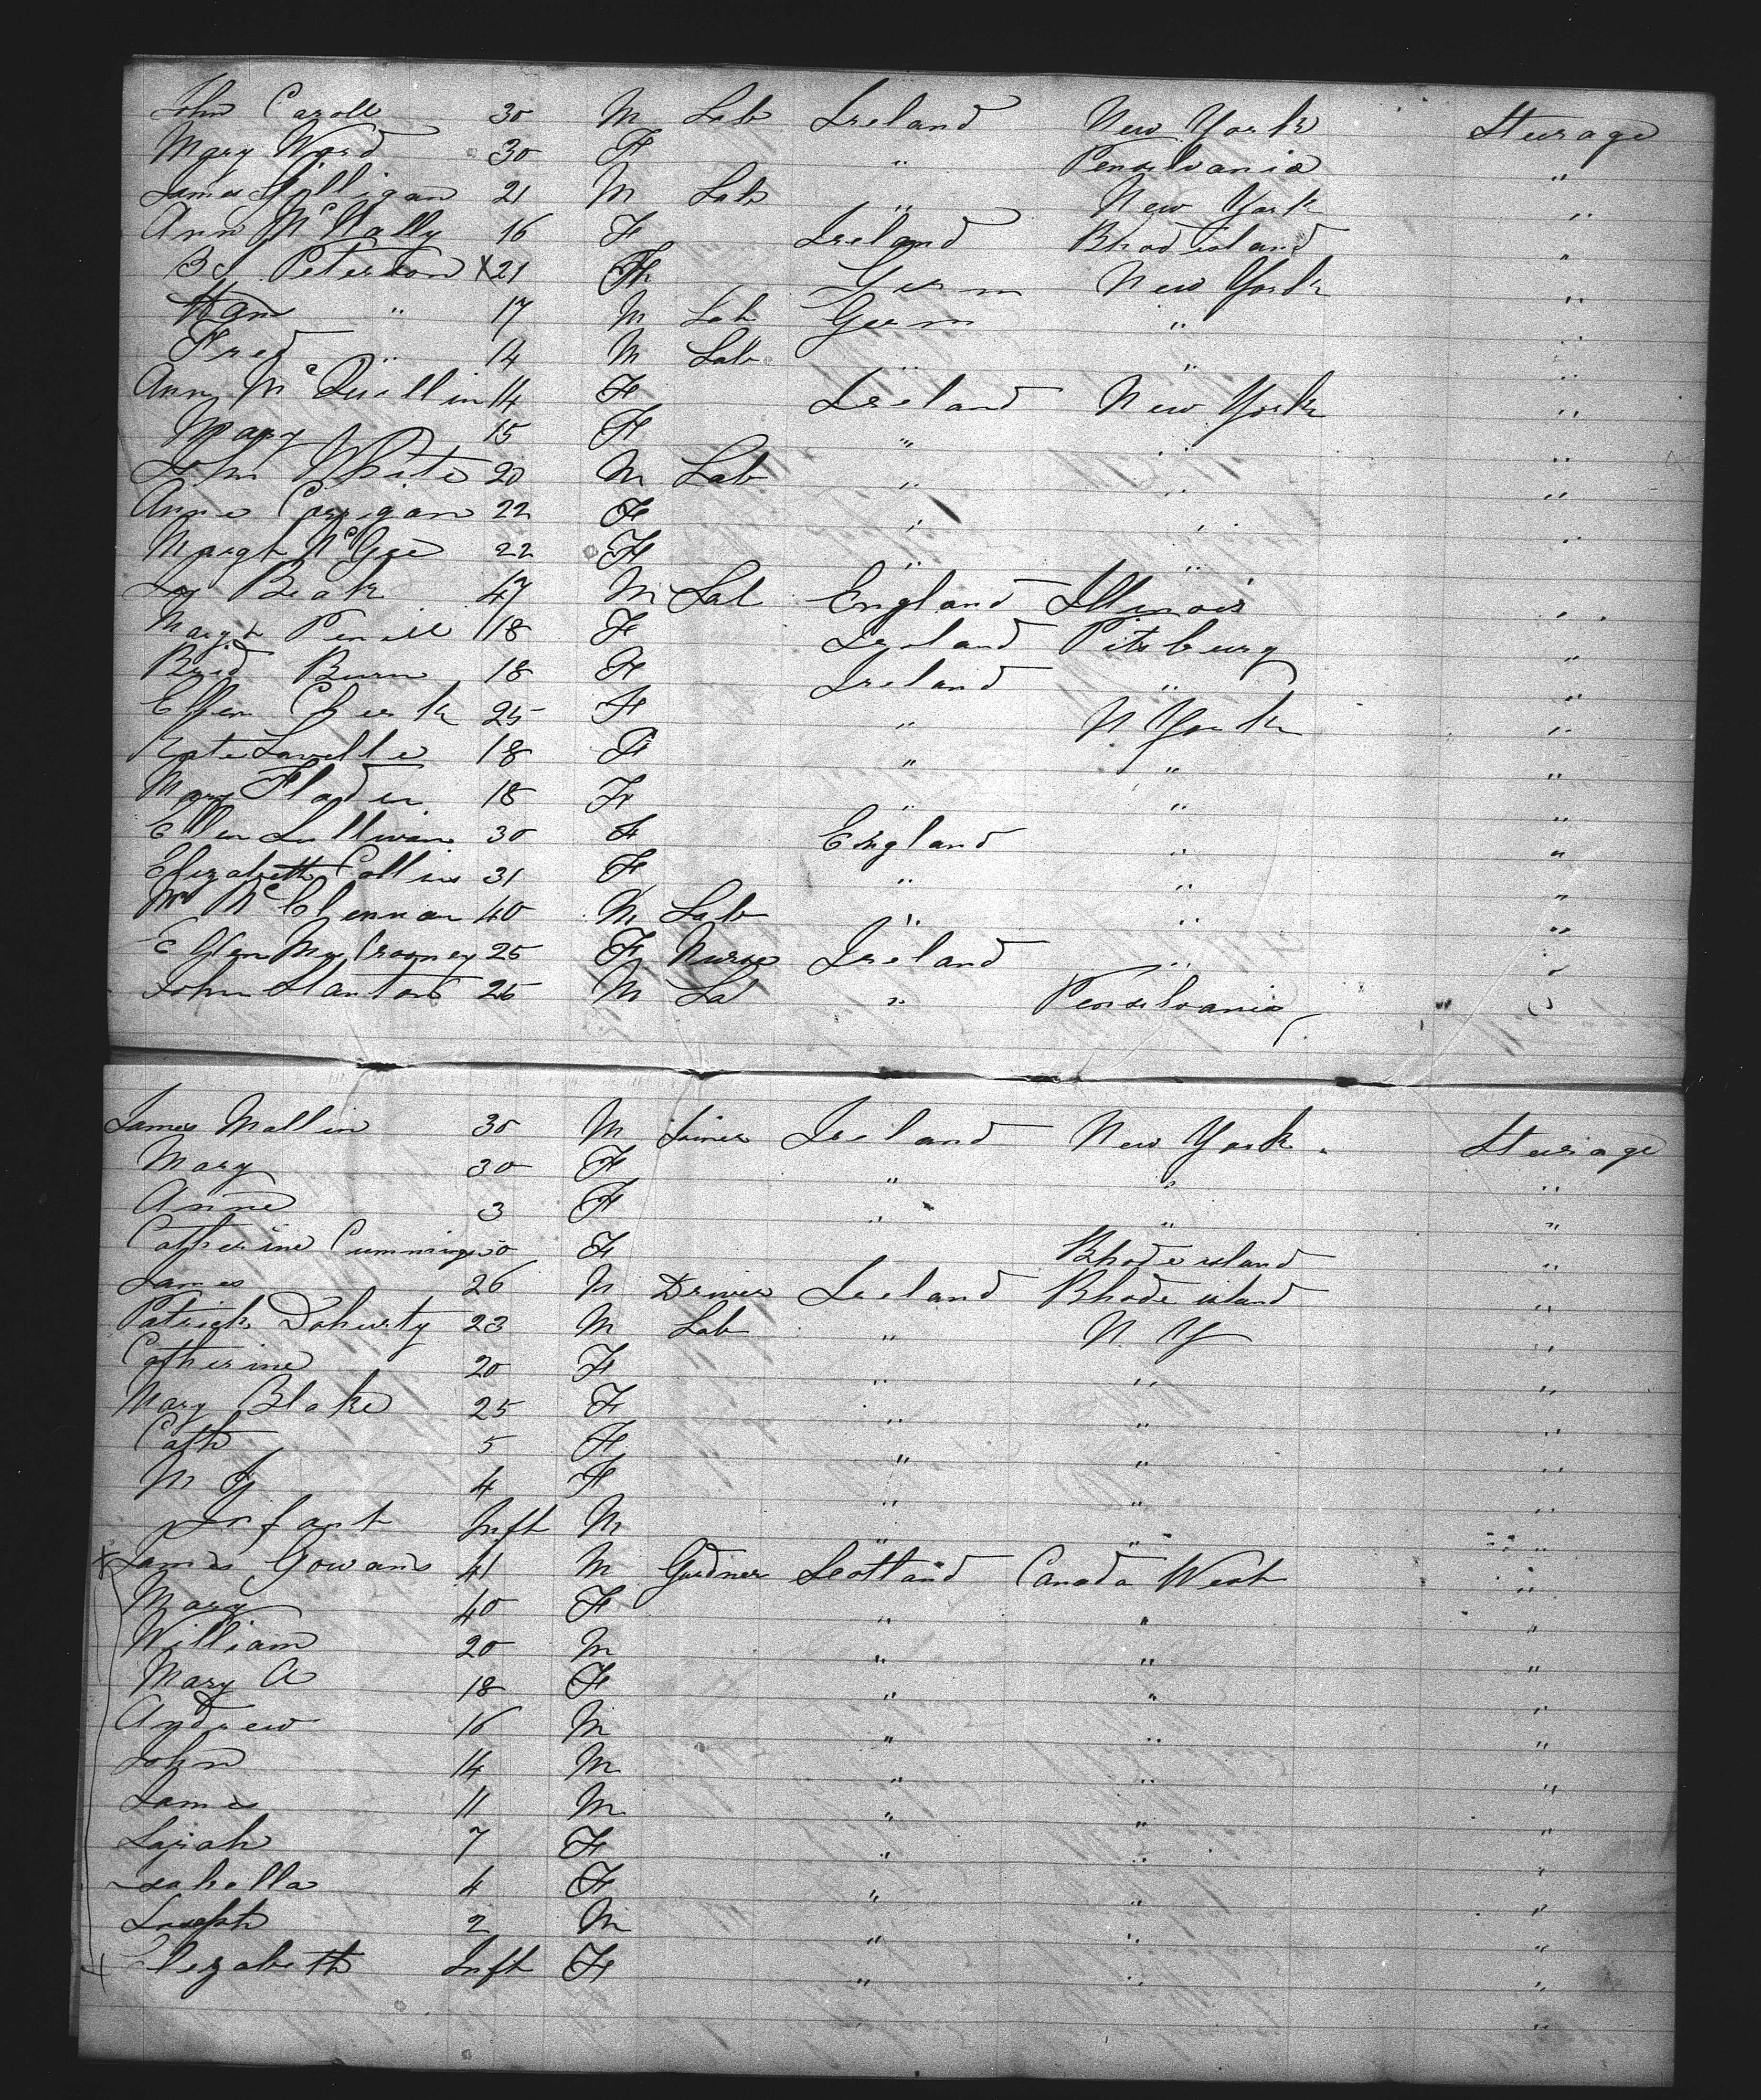 John Caroll 30 M Lab Ireland New York Sturage
Mary Ward 30 F " Pensilvania "
James Gilligan 21 M Lab " New York "
Ann McNally 16 F Ireland Rhod island "
Peterson X 21 Germ New York "
" 17 M Lab Germ " "
Fred " 14 M Lab " " "
Ann McQuillin 14 F Ireland New York "
Mary 15 F " " "
John White 20 M Lab " " "
Anne Corrigan 22 F " " "
Margt McGee 22 F " "
Beak 47 M Lab England Illinois "
Margt 18 F Ireland Pitsburg "
Brid Burn 18 F Ireland " "
Ellen 25 F " N York "
Kate Lavelle 18 F " " "
Mary 18 F " " "
Ellen Sullivan 30 F England " "
Elizabeth Collins 31 F " " "
Wm McClennan 40 M Lab " " "
Ellen 25 F Nurse Ireland " "
John Stanton 25 M La " Pensilvania "
James Mallin 30 M Ireland New York Sturage
Mary 30 F " " "
Anne 3 F " " "
Catherine Cummings 50 F Rhode island "
James 26 M Driver Ireland Rhode island "
Patrick Doherty 23 M Lab " N. Y "
Catherine 20 F " " "
Mary Blake 25 F " " "
Cath 5 F " " "
M 4 F " " "
Infant Inft M " " "
X James Gowans 41 M Gardner Scotland Canada West "
Mary 40 F " " "
William 20 M " " "
Mary A 18 F " " "
Andrew 16 M " " "
John 14 M " " "
James 11 M " " "
Sarah 7 F " " "
Isabella 4 F " " "
Joseph 2 M " " "
X Elizabeth Inft F " " "